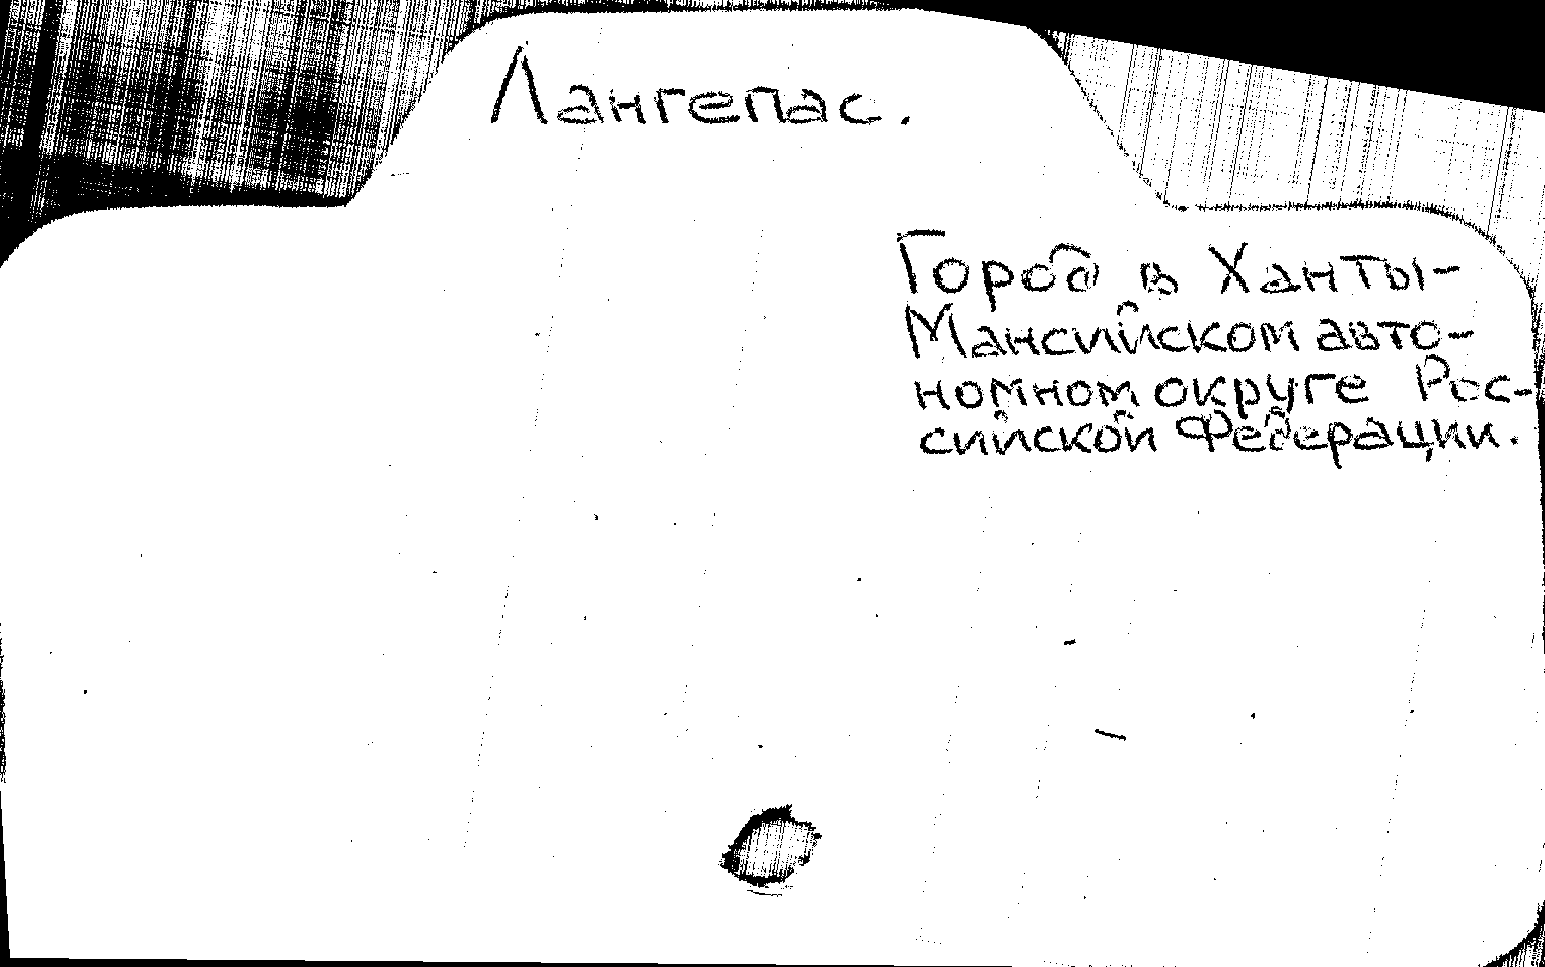 Лангепас.
Город в Ханты-
Мансийском авто-
номном округе Рос-
сийской Федерации.